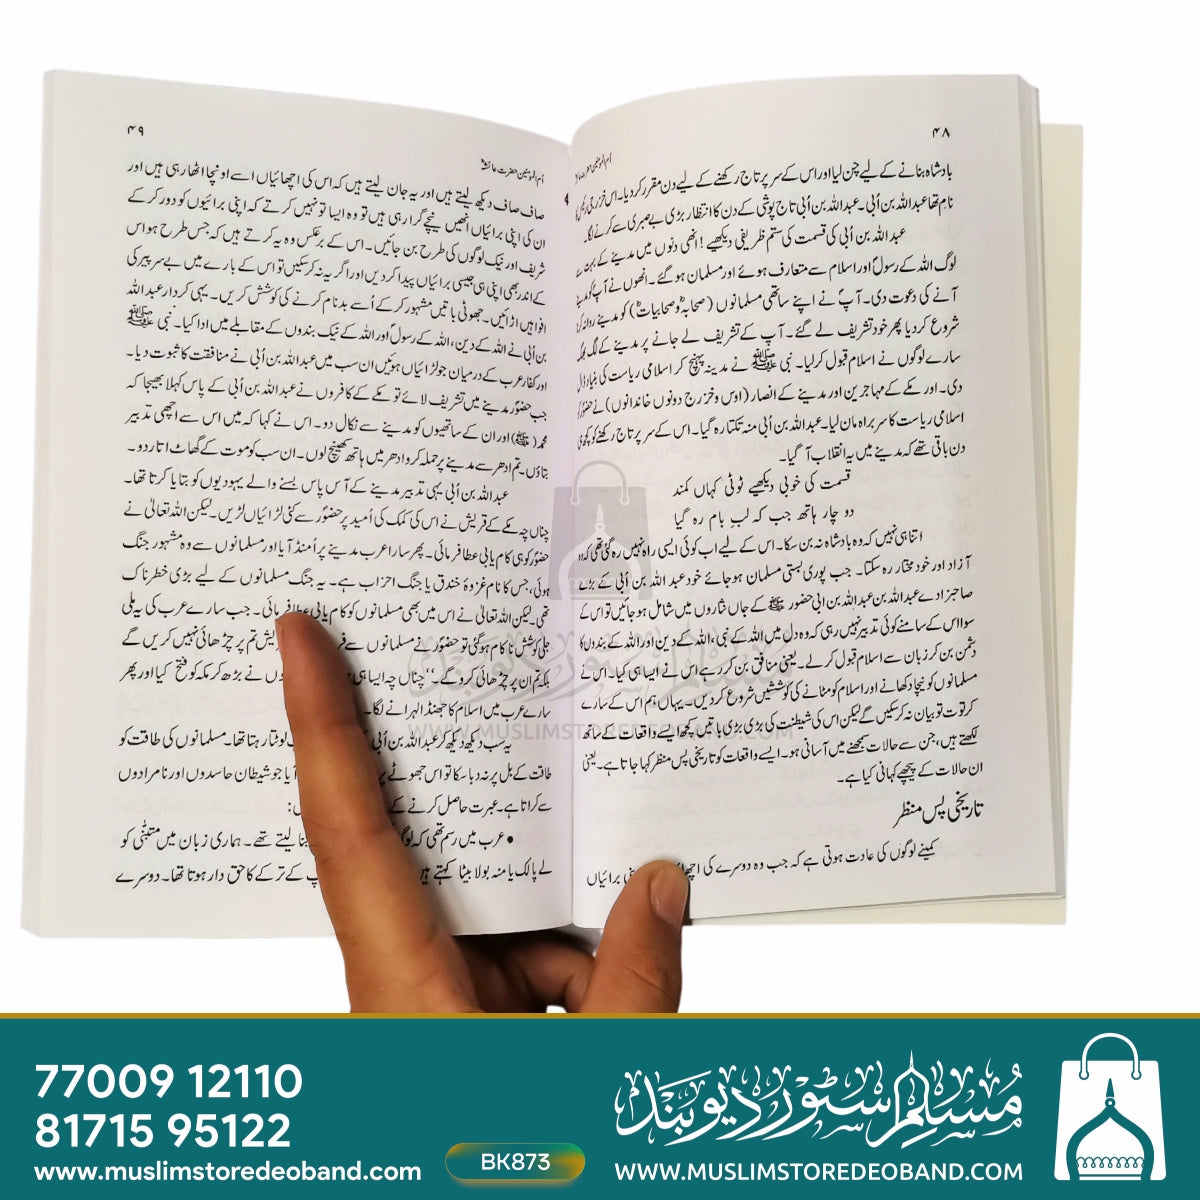 ۴۸
بادشاہ بنانے کے لیے چن لیا اور اس کے سر پر تاج رکھنے کے لیے دن مقرر کر دیا۔ اس خزرجی
نام تھا عبداللہ بن اُبی۔ عبداللہ بن اُبی تاج پوشی کے دن کا انتظار بڑی بے صبری سے کرنے لگا۔
عبداللہ بن اُبی کی قسمت کی ستم ظریفی دیکھیے! انھی دنوں میں مدینے کے بہت سے
لوگ اللہ کے رسولؐ اور اسلام سے متعارف ہوئے اور مسلمان ہوگئے۔ انھوں نے آپؐ کو مدینے
آنے کی دعوت دی۔ آپؐ نے اپنے ساتھی مسلمانوں (صحابہؓ وصحابیاتؓ) کو مدینے روانہ کرنا
شروع کر دیا پھر خود تشریف لے گئے۔ آپ کے تشریف لے جانے پر مدینے کے لگ بھگ
سارے لوگوں نے اسلام قبول کرلیا۔ نبی ﷺ نے مدینہ پہنچ کر اسلامی ریاست کی بنیاد ڈال
دی۔ اور مکے کے مہاجرین اور مدینے کے انصار (اوس وخزرج دونوں خاندانوں) نے حضورؐ کو
اسلامی ریاست کا سربراہ مان لیا۔ عبداللہ بن اُبی منہ تکتا رہ گیا۔ اس کے سر پر تاج رکھنے کو کچھ ہی
دن باقی تھے کہ مدینے میں یہ انقلاب آگیا۔
قسمت کی خوبی دیکھیے ٹوٹی کہاں کمند
دو چار ہاتھ جب کہ لبِ بام رہ گیا
اتنا ہی نہیں کہ وہ بادشاہ نہ بن سکا۔ اس کے لیے اب کوئی ایسی راہ نہیں رہ گئی تھی کہ وہ
آزاد اور خود مختار رہ سکتا۔ جب پوری بستی مسلمان ہوجائے خود عبداللہ بن اُبی کے بڑے
صاحبزادے عبداللہ بن عبداللہ بن ابی حضور ﷺ کے جاں نثاروں میں شامل ہوجائیں تو اس کے
سوا اس کے سامنے کوئی تدبیر نہیں رہی کہ وہ دل میں اللہ کے نبی، اللہ کے دین اور اللہ کے بندوں کا
دشمن بن کر زبان سے اسلام قبول کرلے۔ یعنی منافق بن کر رہے اس نے ایسا ہی کیا۔ اس نے
مسلمانوں کو نیچا دکھانے اور اسلام کو مٹانے کی کوششیں شروع کردیں۔ یہاں ہم اس کے سارے
کرتوت تو بیان نہ کر سکیں گے لیکن اس کی شیطنت کی بڑی بڑی باتیں کچھ ایسے واقعات کے ساتھ
لکھتے ہیں، جن سے حالات سمجھنے میں آسانی ہو۔ ایسے واقعات کو تاریخی پس منظر کہا جاتا ہے۔ یعنی
ان حالات کے پیچھے کہانی کیا ہے۔
تاریخی پس منظر
کمینے لوگوں کی عادت ہوتی ہے کہ جب وہ دوسرے کی برائیاں
۴۹
اُم المؤمنین حضرت عائشہؓ
صاف صاف دیکھ لیتے ہیں اور یہ جان لیتے ہیں کہ اس کی اچھائیاں اسے اونچا اٹھا رہی ہیں اور
ان کی اپنی برائیاں انھیں نیچے گرا رہی ہیں تو وہ ایسا تو نہیں کرتے کہ اپنی برائیوں کو دور کرکے
شریف اور نیک لوگوں کی طرح بن جائیں۔ اس کے برعکس وہ یہ کرتے ہیں کہ جس طرح ہو اس
کے اندر بھی اپنی ہی جیسی برائیاں پیدا کردیں اور اگر یہ نہ کر سکیں تو اس کے بارے میں بے سر پیر کی
افواہیں اڑائیں۔ جھوٹی باتیں مشہور کرکے اُسے بدنام کرنے کی کوشش کریں۔ یہی کردار عبداللہ
بن اُبی نے اللہ کے دین، اللہ کے رسولؐ اور اللہ کے نیک بندوں کے مقابلے میں ادا کیا۔ نبی ﷺ
اور کفار عرب کے درمیان جو لڑائیاں ہوئیں ان سب میں عبداللہ بن اُبی نے منافقت کا ثبوت دیا۔
جب حضورؐ مدینے میں تشریف لائے تو مکے کے کافروں نے عبداللہ بن اُبی کے پاس کہلا بھیجا کہ
محمد (ﷺ) اور ان کے ساتھیوں کو مدینے سے نکال دو۔ اس نے کہا کہ میں اس سے اچھی تدبیر
بتاؤں۔ تم ادھر سے مدینے پر حملہ کرو ادھر میں ہاتھ کھینچ لوں۔ ان سب کو موت کے گھاٹ اتار دو۔
عبداللہ بن اُبی یہی تدبیر مدینے کے آس پاس بسنے والے یہودیوں کو بتایا کرتا تھا۔
چناں چہ مکے کے قریش نے اس کی کمک کی اُمید پر حضورؐ سے کئی لڑائیاں لڑیں۔ لیکن اللہ تعالیٰ نے
حضورؐ کو ہی کام یابی عطا فرمائی۔ پھر سارا عرب مدینے پر اُمنڈ آیا اور مسلمانوں سے وہ مشہور جنگ
ہوئی، جس کا نام غزوۂ خندق یا جنگ احزاب ہے۔ یہ جنگ مسلمانوں کے لیے بڑی خطرناک
تھی لیکن اللہ تعالیٰ نے اس میں بھی مسلمانوں کو کام یابی عطا فرمائی۔ جب سارے عرب کی یہ ملی
جلی کوشش ناکام ہوگئی تو حضورؐ نے مسلمانوں سے تم پر چڑھائی نہیں کریں گے
بلکہ تم ان پر چڑھائی کرو گے۔“ چناں چہ ایسا ہی نے بڑھ کر مکہ کو فتح کیا اور پھر
سارے عرب میں اسلام کا جھنڈا لہرانے لگا۔
یہ سب دیکھ دیکھ کر عبداللہ بن اُبی لوٹتا رہتا تھا۔ مسلمانوں کی طاقت کو
طاقت کے بل پر نہ دبا سکا تو اس جھوٹے پر آیا جو شیطان حاسدوں اور نامرادوں
سے کراتا ہے۔ عبرت حاصل کرنے کے
• عرب میں رسم تھی کہ بنا لیتے تھے۔ ہماری زبان میں متبنّٰی کو
لے پالک یا منہ بولا بیٹا کہتے ہیں کے ترکے کا حق دار ہوتا تھا۔ دوسرے
مسلم سٹور دیوبند
WWW.MUSLIMSTOREDEOBAND.COM
77009 12110
81715 95122
www.muslimstoredeoband.com
BK873
مسلم سٹور دیوبند
WWW.MUSLIMSTOREDEOBAND.COM